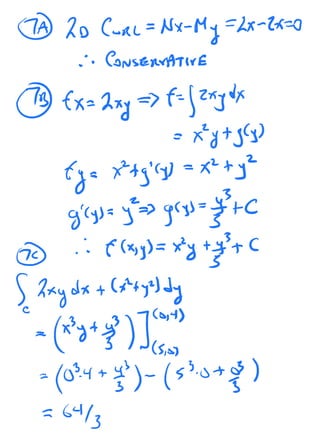 7A 2D CURL = Nx - My = 2x - 2x = 0
∴ CONSERVATIVE
7B fx = 2xy => f = ∫ 2xy dx
= x²y + g(y)
fy = x² + g'(y) = x² + y²
g'(y) = y² => g(y) = y³/3 + C
7C ∴ f(x,y) = x²y + y³/3 + C
∫c 2xy dx + (x²+y²) dy
= (x³y + y³/3) ] (0,4) (5,0)
= (0³·4 + 4³/3) - (5³·0 + 0³/3)
= 64/3